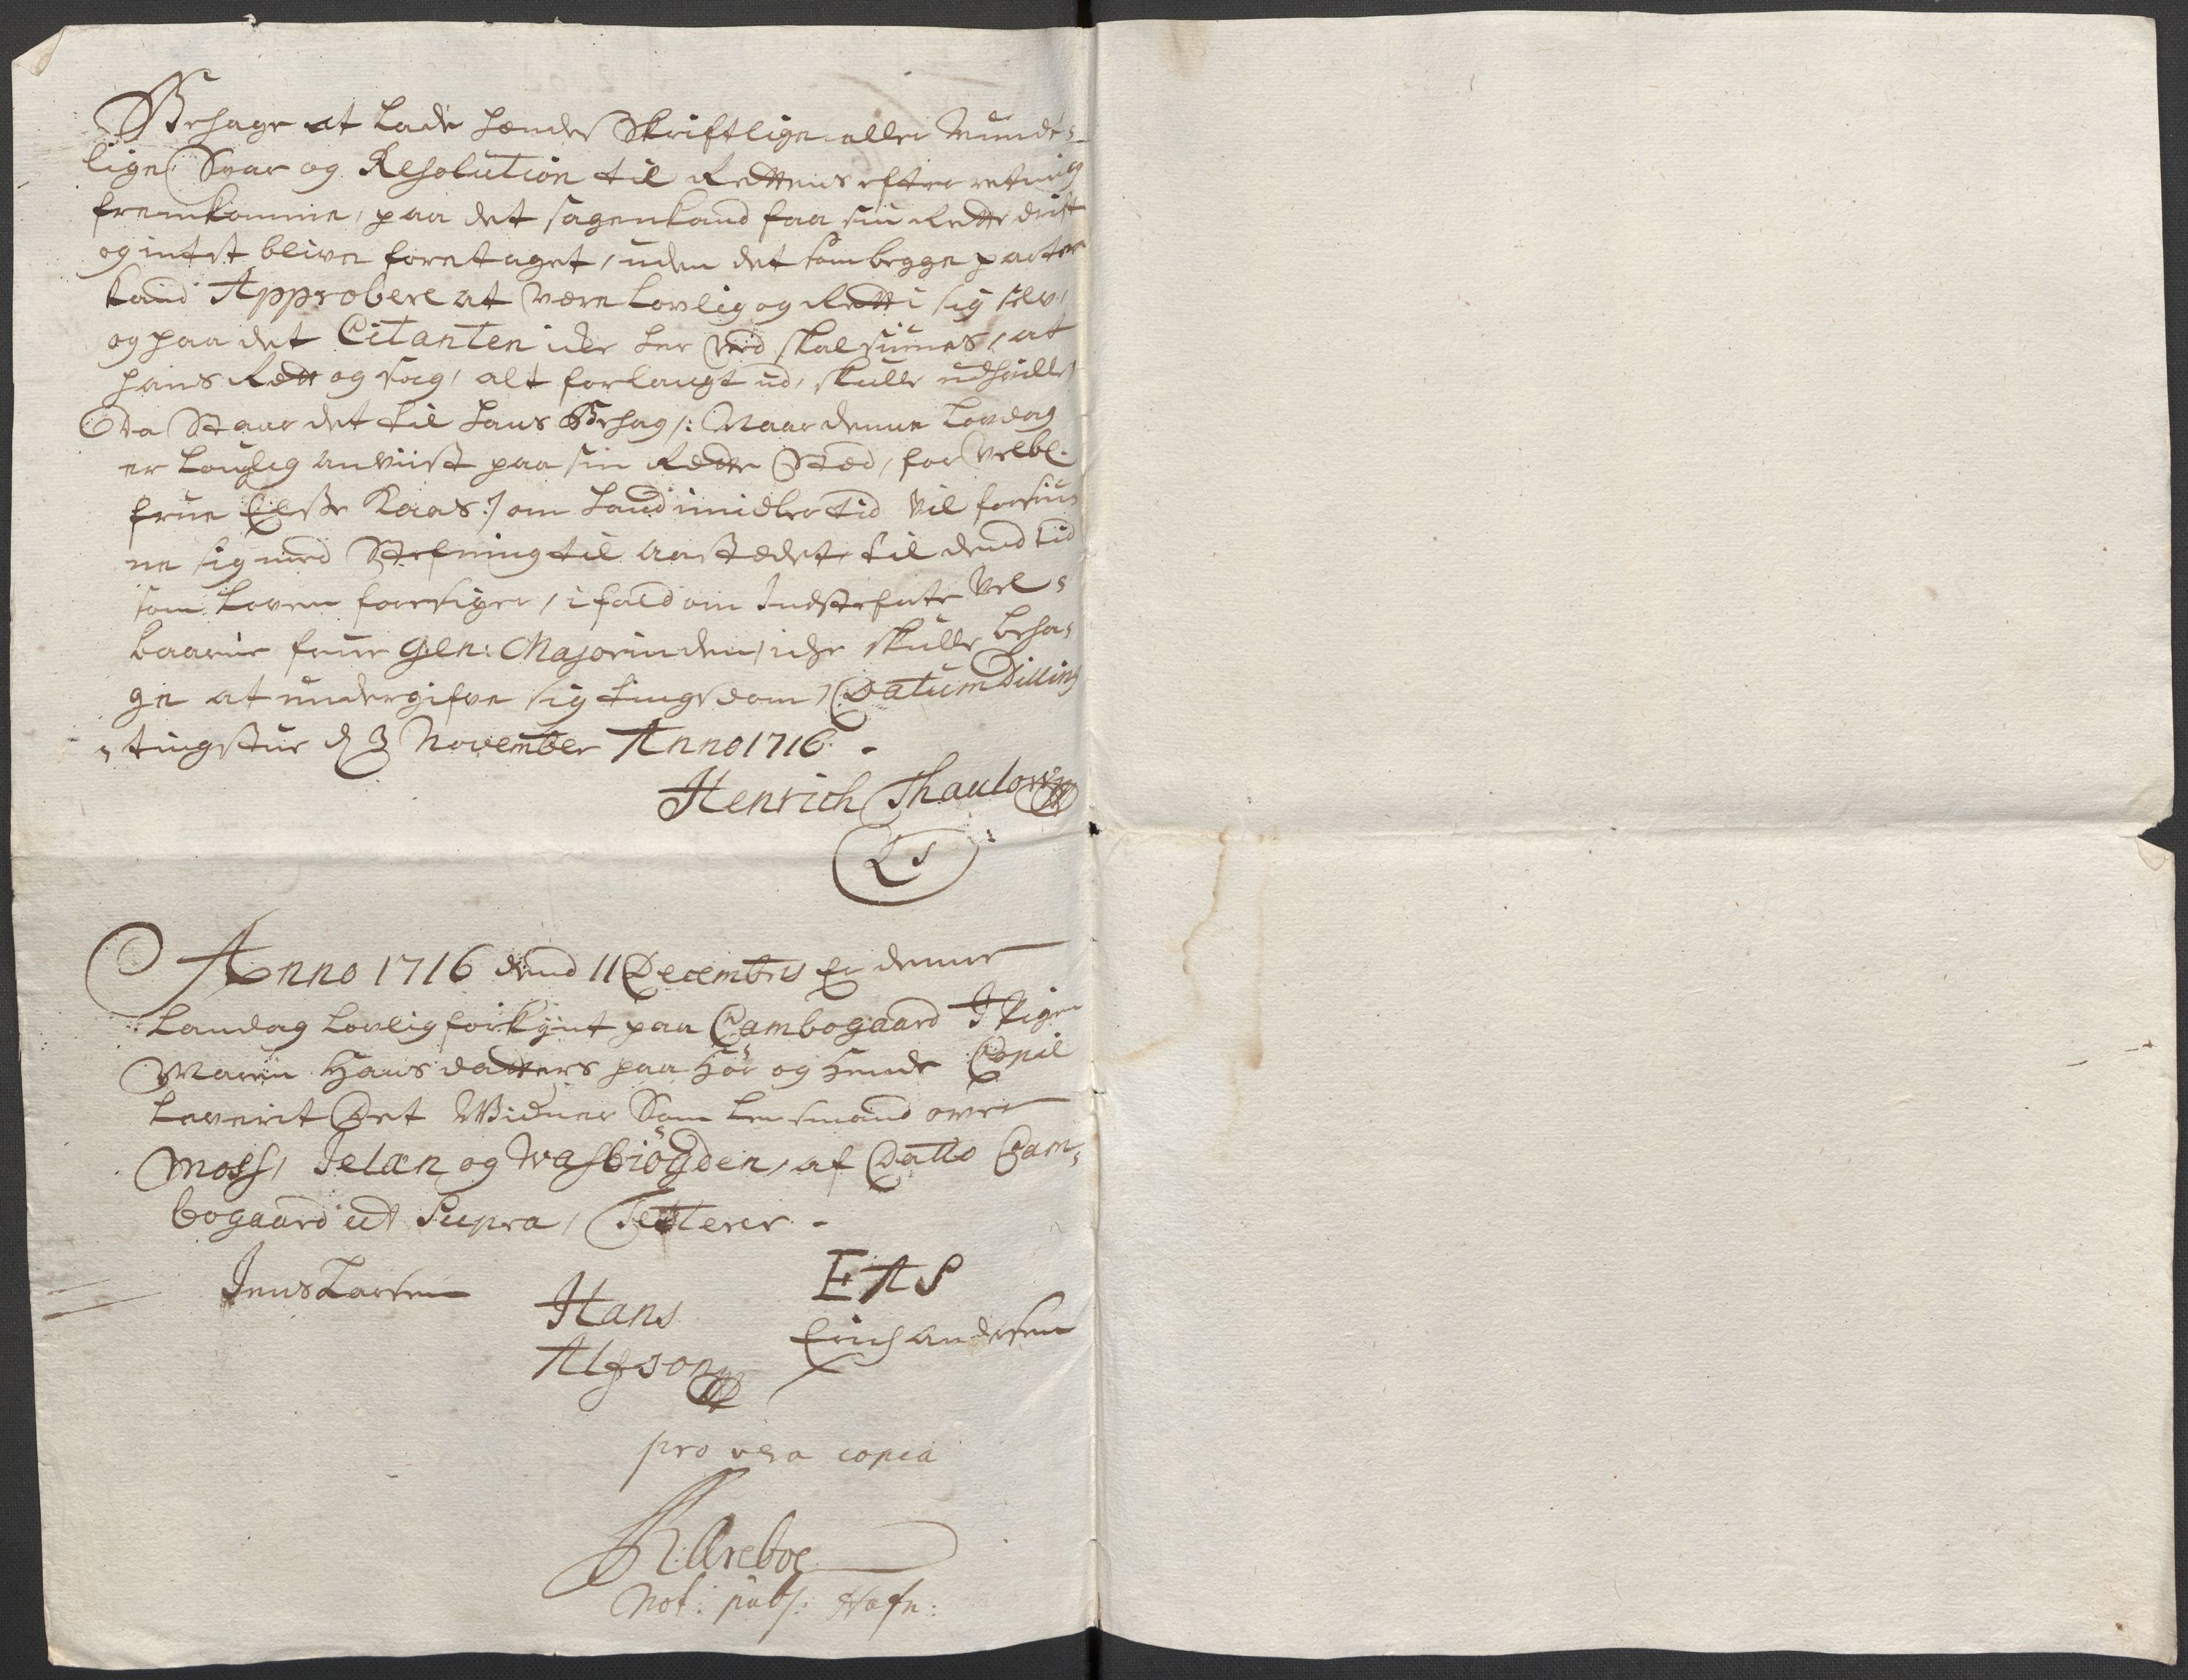 Behage at Lade hendes Skriftlige eller Munde-
lige Svar og Resolution til Rettens efterretning
fremkomme, paa det sagen kand faa sin Rette drift
og intet blive foretaget, uden det som begge parter
kand Approbere at være Lovlig og Rett i sig selv,
og paa det Citanten icke her ved skal siunes, at
hans Rett og sag, alt forlangt ud, skulle udhville
Da Staar det til hans Behag /: Naar denne Lovdag
er Louglig anviist paa sin Rette Sted, for Velb:
frue Elsse Kaas :/ om hand imidlertid vil forsiu-
ne sig med Stefning til aastædet til dend tid
som Loven foresiger, i fald om Indstefnte Vel-
baarne frue Gen: Majorinden, icke skulle beha-
ge at undergifve sig tingsdom, Datum Dilling
tingstue d 3 November Anno 1716.
Henrich Thaulow
LS
Anno 1716 dend 11 Decembris Er denne
Landag Lovlig forkynt paa Cambogaard I Pigen
Maren Hansdatters paa Hør og Hende Copie
Leverit Det Widner Som Lensmand over
Moss, Jeløen og Wasbiøgden, af Datto Cam-
bogaard ut Supra, Testerer.
Jens Larsen
Hans
Alfson
EAS
Erich Andersen
pro vera copia
R: Areboe
Not: publ: Hafn: